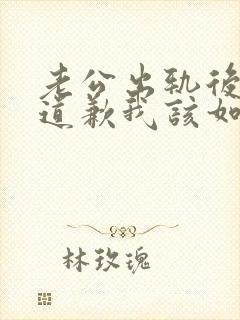 老公出轨後
道歉我該如
林玫瑰